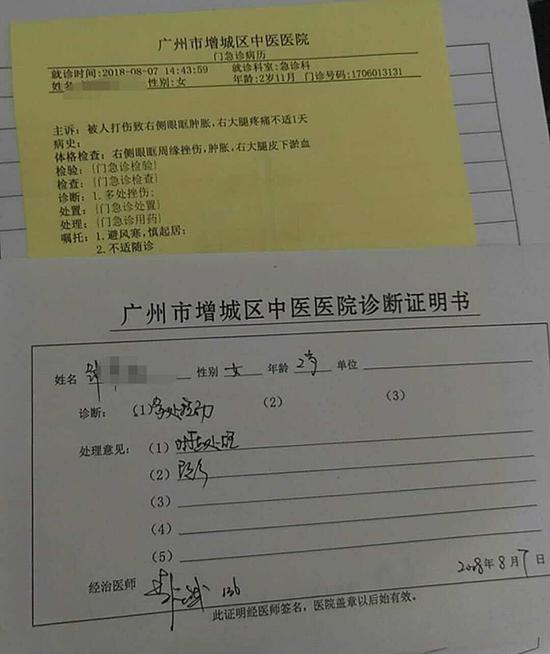 广州市增城区中医医院
门急诊病历
就诊时间:2018-08-07 14:43:59 就诊科室:急诊科
姓名 性别:女 年龄:2岁11月 门诊号码:1706013131
主诉：被人打伤致右侧眼眶肿胀，右大腿疼痛不适1天
病史：
体格检查：右侧眼眶周缘挫伤，肿胀，右大腿皮下淤血
检验：{门急诊检验}
检查：{门急诊检查}
诊断：1.多处挫伤；
处置：{门急诊处置}
处理：{门急诊用药}
嘱托：1.避风寒，慎起居；
2.不适随诊
广州市增城区中医医院诊断证明书
姓名 性别 女 年龄 2岁 单位
诊断： (1) 多处挫伤 (2) (3)
处理意见： (1) 对症处理
(2) 随诊
(3)
(4)
(5)
经治医师 2018年8月7日
此证明经医师签名，医院盖章以后始有效。